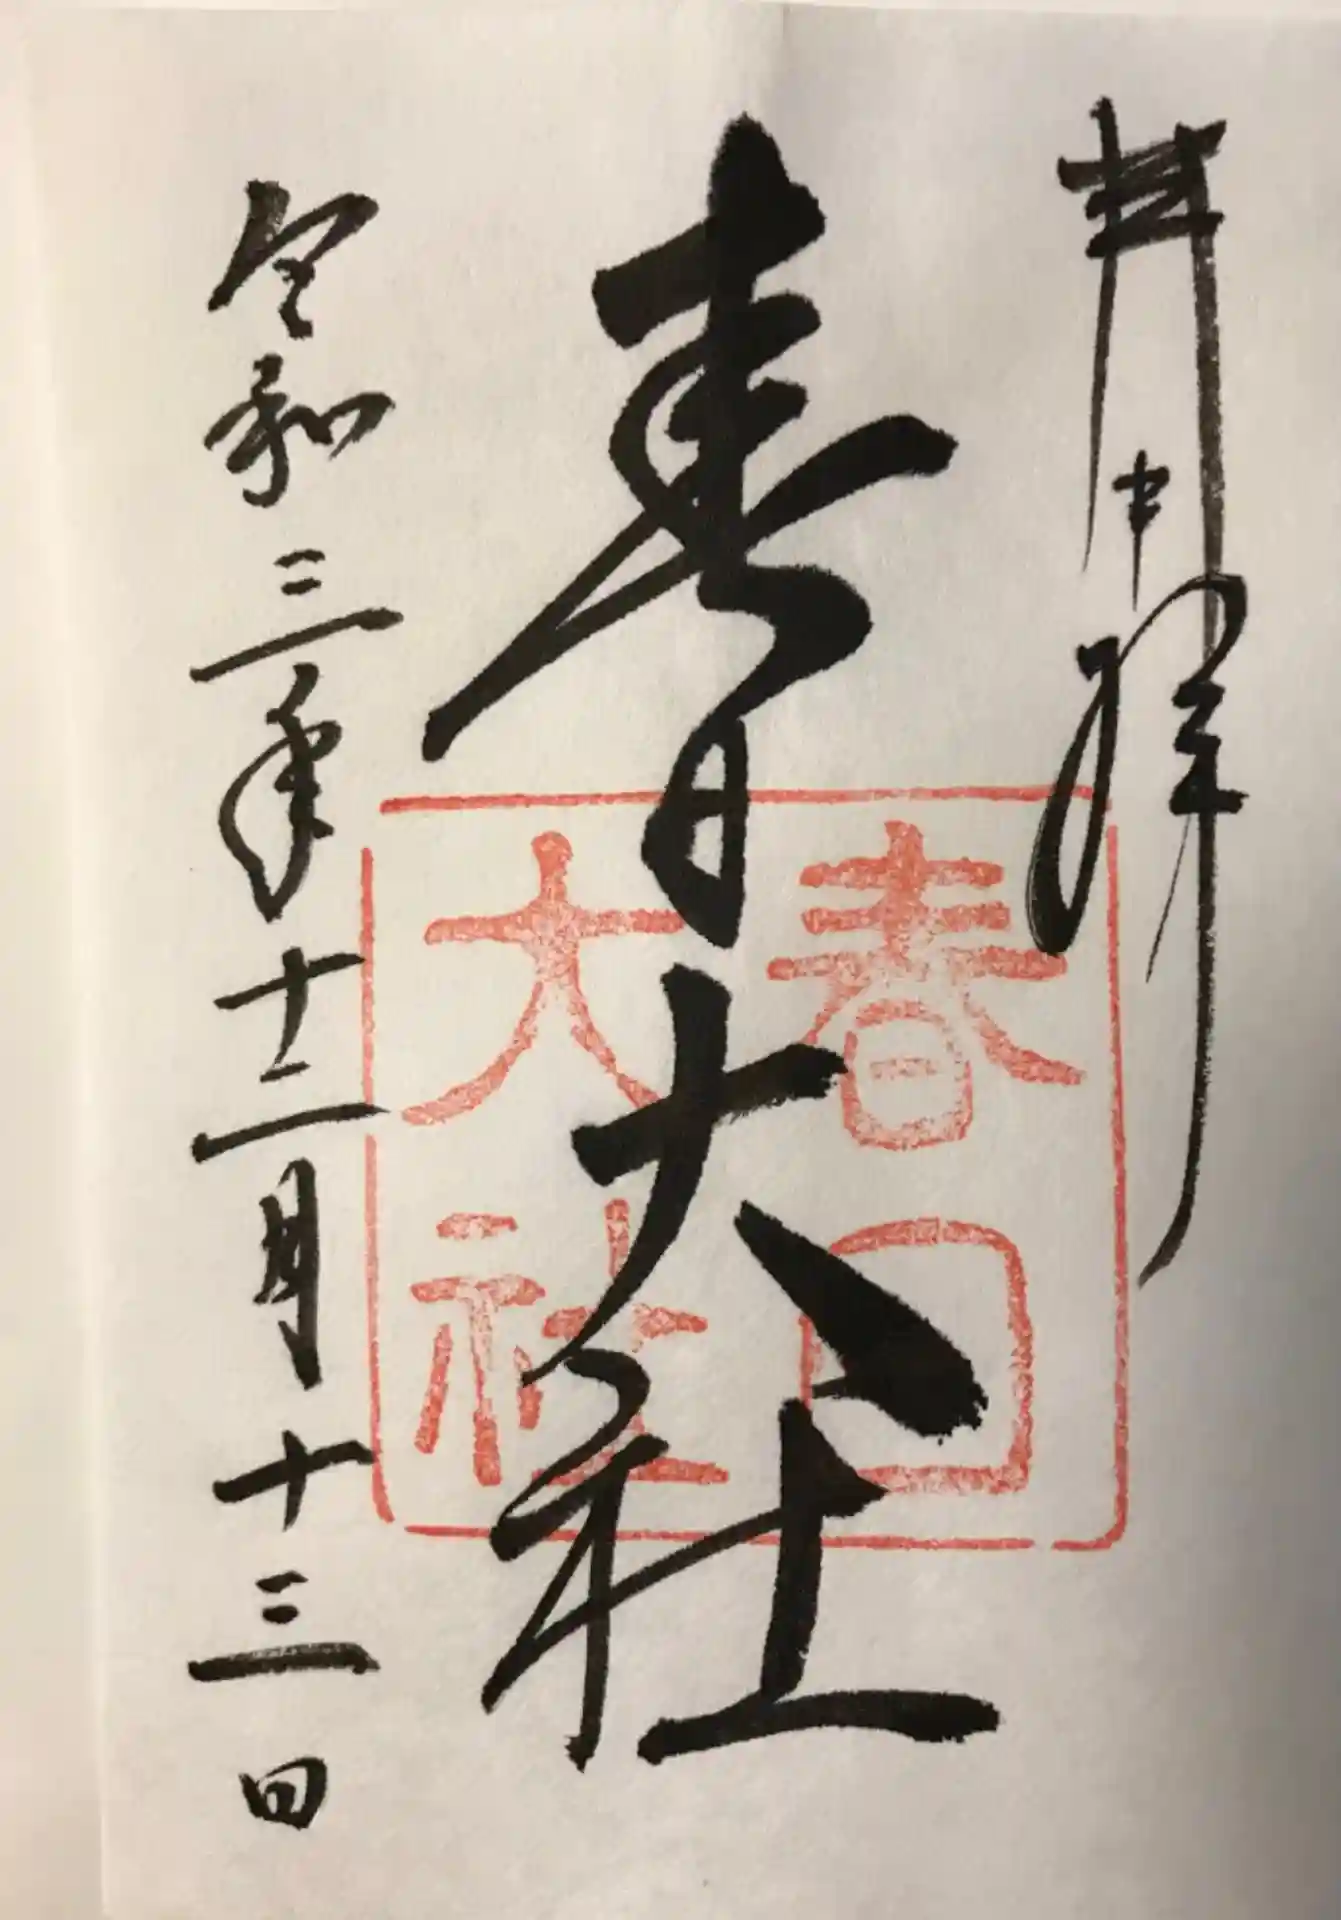 奉拝
春日大社
春日
大社
令和三年十二月十三日